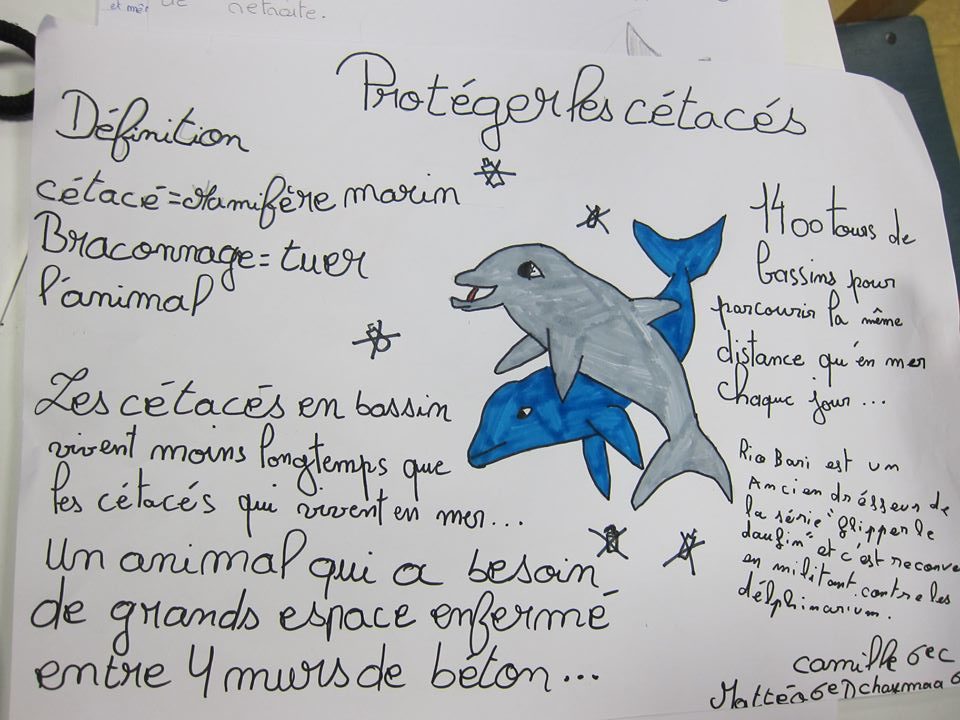 et mê
de retraite.
Protéger les cétacés
Définition
cétacé = Mamifère marin
Braconnage = tuer
l'animal
Les cétacés en bassin
vivent moins longtemps que
les cétacés qui vivent en mer...
Un animal qui a besoin
de grands espace enfermé
entre 4 murs de béton...
1400 tours de
bassins pour
parcourir la même
distance qu'en mer
chaque jour...
Rico Bari est un
Ancien drésseur de
la série "flipper le
daufin" et c'est reconve
en militant contre les
délphinarium.
camille 6eC
Mattéo 6eD